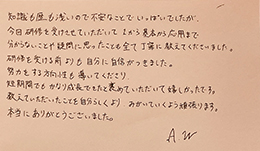 知識も歴も浅いので不安なことでいっぱいでしたが、
今日研修を受けさせていただいて1から基本から応用まで
分からないことや疑問に思ったことも全て丁寧に教えてくださいました。
研修を受ける前よりも自分に自信がつきました。
努力をする方向性も導いてくださり、
短期間でもかなり成長できたと褒めていただいて嬉しかったです。
教えていただいたことを自分らしくより みがいていくよう頑張ります。
本当にありがとうございました。
A.W